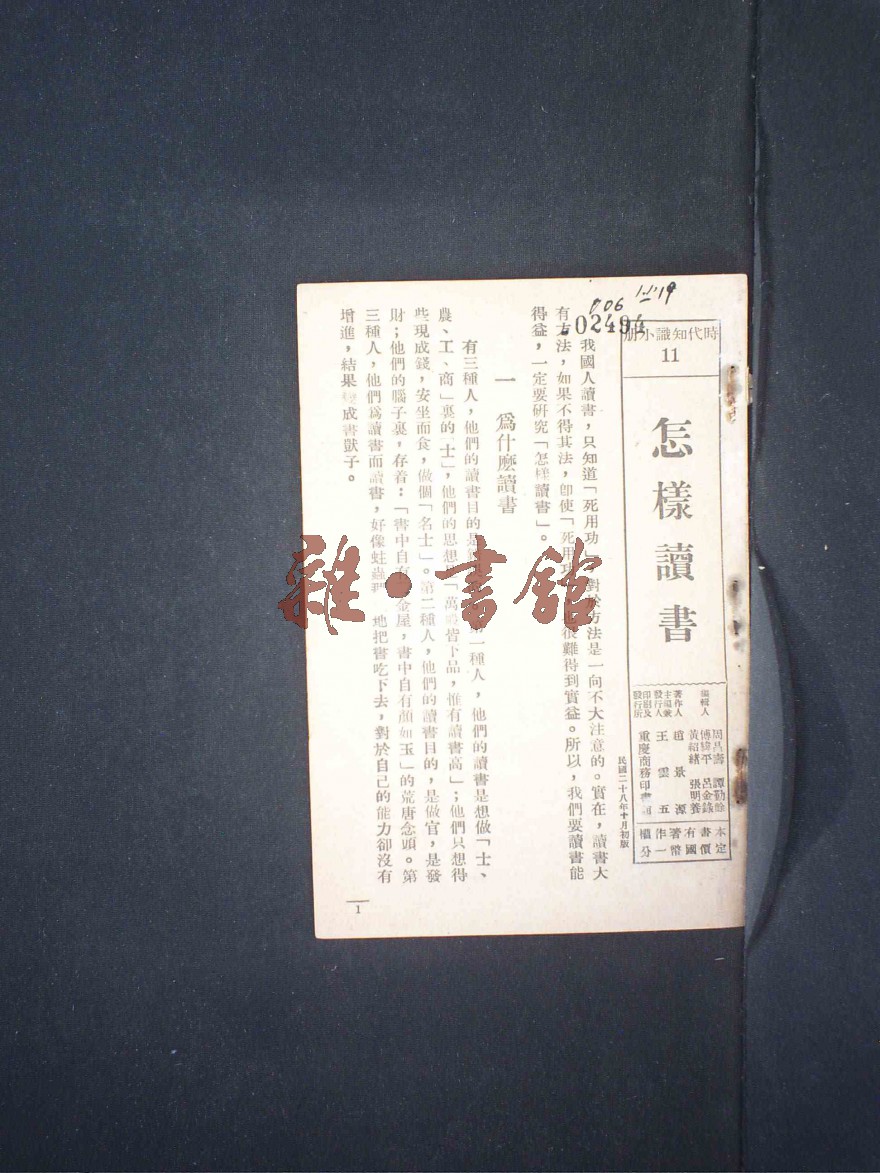 006
02494
時代知識小冊
11
怎樣讀書
編輯人 周昌壽 譚勤餘 傅緯平 呂金錄 黃紹緒 張明養
著作人 趙景源
主編兼發行人 王雲五
印刷及發行所 重慶商務印書館
本書定價國幣一分
有著作權
民國二十八年十月初版
我國人讀書,只知道「死用功」,對於方法是一向不大注意的。實在,讀書大
有方法,如果不得其法,卽使「死用功」,也很難得到實益。所以,我們要讀書能
得益,一定要研究「怎樣讀書」。
一 爲什麽讀書
有三種人,他們的讀書目的是 第一種人,他們的讀書是想做「士、
農、工、商」裏的「士」,他們的思想是「萬般皆下品,惟有讀書高」;他們只想得
些現成錢,安坐而食,做個「名士」。第二種人,他們的讀書目的,是做官,是發
財;他們的腦子裏,存着:「書中自有黃金屋,書中自有顏如玉」的荒唐念頭。第
三種人,他們爲讀書而讀書,好像蛀蟲 地把書吃下去,對於自己的能力卻沒有
增進,結果變成書獃子。
1
雜·書館